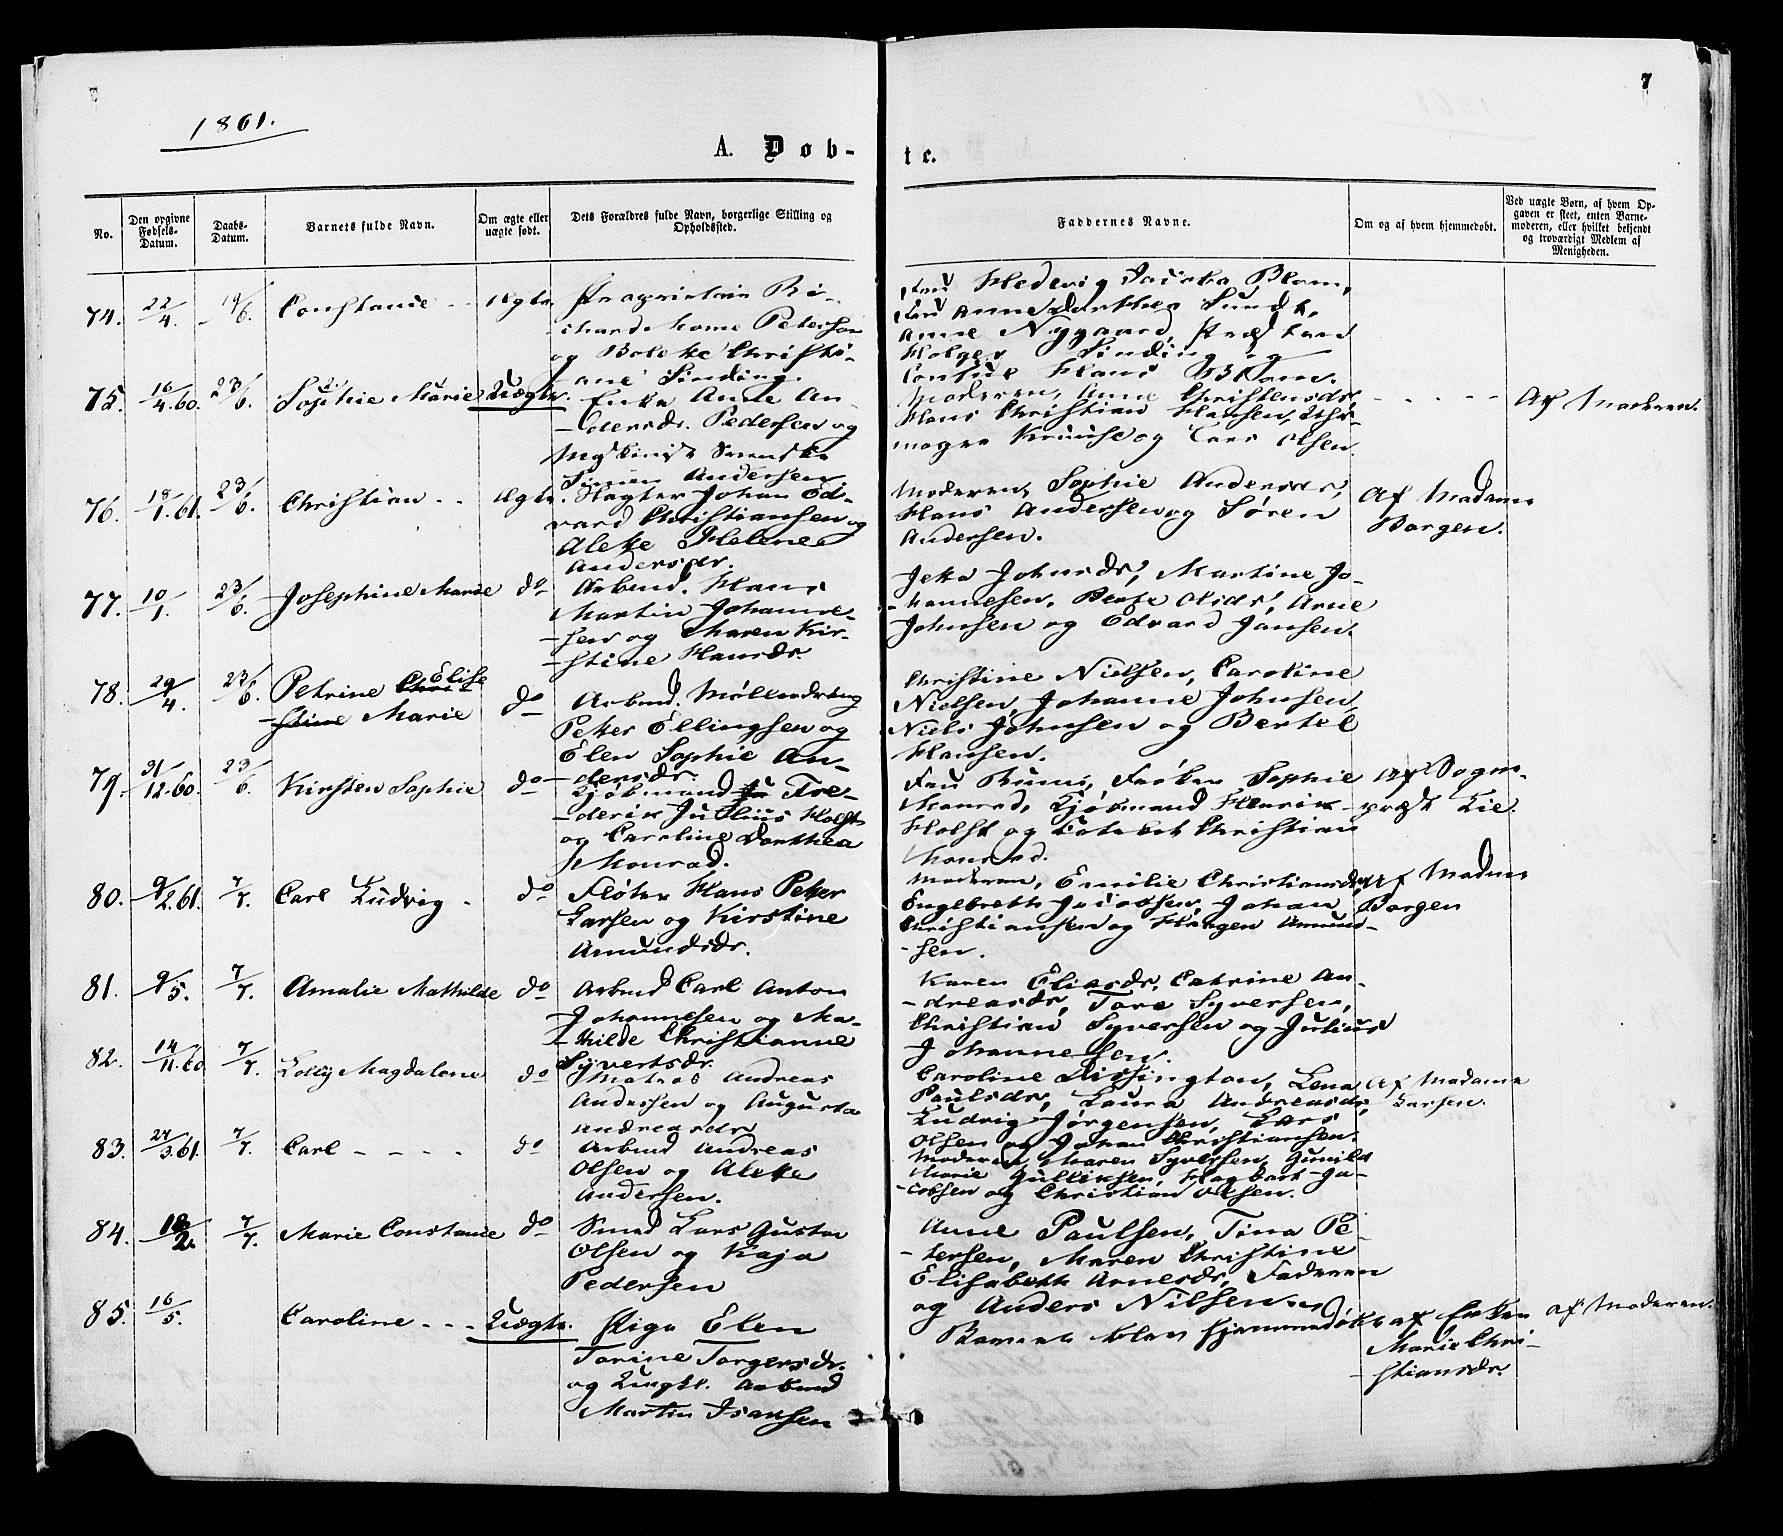 7
1861.
A. Døb-
te.
No.
Den opgivne Fødsels-Datum.
Daabs-Datum.
Barnets fulde Navn.
Om ægte eller uægte født.
Dets Forældres fulde Navn, borgerlige Stilling og Opholdssted.
Faddernes Navne.
Om og af hvem hjemmedøbt.
Ved uægte Børn, af hvem Opgaven er skeet, enten Barnemoderen, eller hvilket bekjendt og troværdigt Medlem af Menigheden.
74. 22/4. 19/6. Constance - - Ægte.
Proprietair Ri-
chard Petersen
og Boleke Christi-
ane Sinding.
Fru Hedevig Blom,
Fru Anne Dorthea Sundt,
Anne Nygaard,
Holger Sinding og
Consul Hans Blom.
75. 16/4.60. 23/6. Sophie Marie Uægte.
Enke Ane An-
dersdr. Pedersen og
Svenske
Andersen.
Moderen, Anne Christensdr,
Hans Christian Hansen,
Kruuse og Lars Olsen.
- - - - -
Af Moderen.
76. 18/1.61. 23/6. Christian - - Ægte.
Slagter Johan Ed-
vard Christiansen og
Aleke Helene
Andersdr.
Moderen, Sophie Andersdr,
Hans Andersen og Søren
Andersen.
Af Madame
Borgen.
77. 10/1. 23/6. Josephine Marie do
Arbmd. Hans
Martin Johanne-
-sen og Maren Kir-
-stine Hansdr.
Johnsdr, Martine Jo-
-hannesen, Olsdr, Arne
Johnsen og Edvard Jansen.
78. 29/4. 23/6. Petrine Chri- Elise
-stine Marie do
Arbmd.
Peter Ellingsen og
Elen Sophie An-
-dersdr.
Christine Nielsen, Caroline
Nielsen, Johanne Johnsen,
Niels Johnsen og Bertel
Hansen.
79. 31/12.60. 23/6. Kirsten Sophie do
Kjøbmand Fre-
-derik Julius Holst
og Caroline Dorthea
Monrad.
Fru Frøken Sophie
Monrad, Kjøbmand Henrik
Holst og Christian
Monrad.
Af Sogne-
præst Lie.
80. 9/2.61. 7/7. Carl Ludvig - do
Fløter Hans Peter
Larsen og Kirstine
Amundsdr.
Moderen, Emilie Christiansdr,
Engebreth Jacobsen, Johan
Christiansen og Hangen Amund-
-sen.
Af Madame
Borgen
81. 9/5. 7/7. Amalie Mathilde do
Arbmd Carl Anton
Johannesen og Ma-
-thilde Christianne
Syvertsdr.
Karen Eliasdr, Catrine An-
-dreasdr, Tore Syversen,
Christian Syversen og Julius
Johannesen.
82. 14/11.60 7/7. Lolly Magdalene do
Matros Andreas
Andersen og Augusta
Andreasdr
Caroline Dissington, Lena
Paulsdr, Laura Andreasdr,
Ludvig Jørgensen, Lars
Olsen og Johan Christiansen.
Af Madame
Larsen.
83. 27/3.61. 7/7. Carl - - - - do
Arbmd Andreas
Olsen og Aleke
Andersen.
Moderen, Maren Syversen, Gunild
Marie Gulliksen, Hagbart Ja-
-cobsen og Christian Olsen.
84. 18/2. 7/7. Marie Constance do
Smed Lars Gustav
Olsen og Kaja
Pedersen
Anne Paulsen, Tina Pe-
-tersen, Maren Christine
Elisabeth Arnesdr, Faderen
og Anders Nilsen.
85. 16/5. Caroline - - - Uægte.
Pige Elen
Torine Torgersdr.
og Ungkl. Arbmd
Martin Isaksen
Barnet blev hjemmedøbt af Enken
Marie Chri-
-stiansdr.
af Moderen.